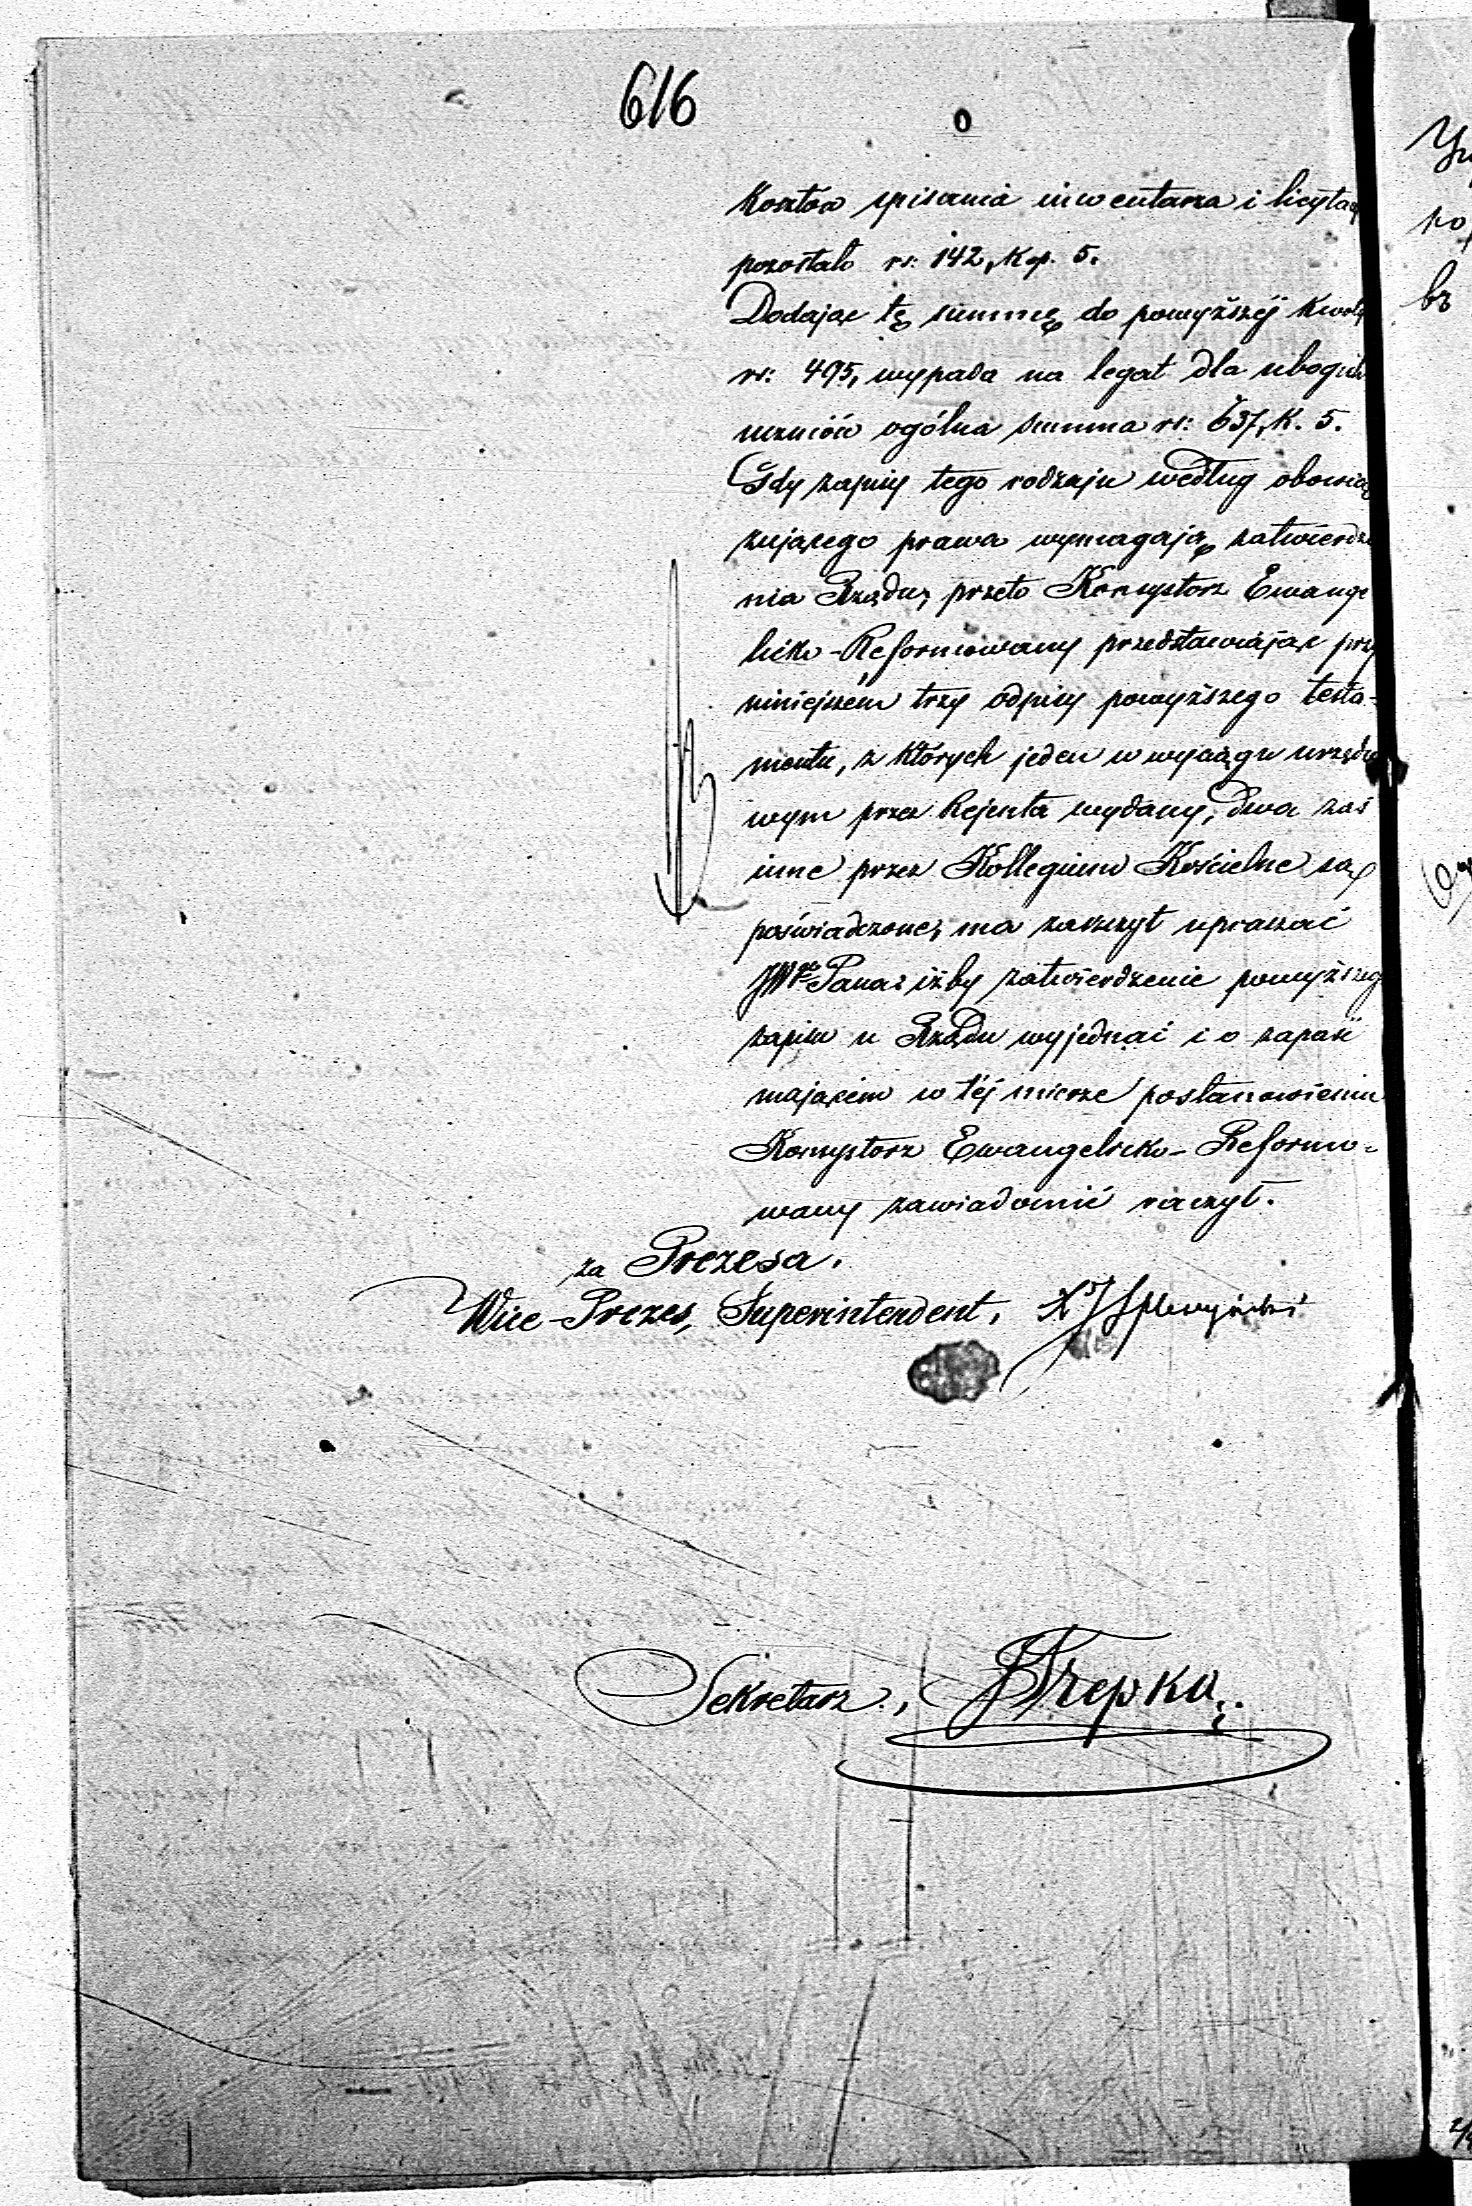 616
kosztów spisania inwentarza i licytacy
pozostało rs: 142, kop. 5.
Dodając tę summę do powyższéj kwoty
rs: 495, wypada na legat dla ubogich
uczniów ogólna summa rs: 637, k. 5.
Gdy zapisy tego rodzaju według obowią
zującego prawa wymagają zatwierdze
nia Rządu, przeto Konsystorz Ewange
licko-Reformowany przedstawiając przy
niniejszém trzy odpisy powyższego testa-
mentu, z których jeden w wyciągu urzędo
wym przez Rejenta wydany, dwa zaś
inne przez Kollegium Kościelne są
poświadczone, ma zaszczyt upraszać
JWgo Pana, iżby zatwierdzenie powyższego
zapisu u Rządu wyjednać i o zapaść
mającém w téj mierze postanowieniu
Konsystorz Ewangelicko-Reformo-
wany zawiadomić raczył.
za Prezesa.
Wice-Prezes, Superintendent, X J
Sekretarz, Rzepka